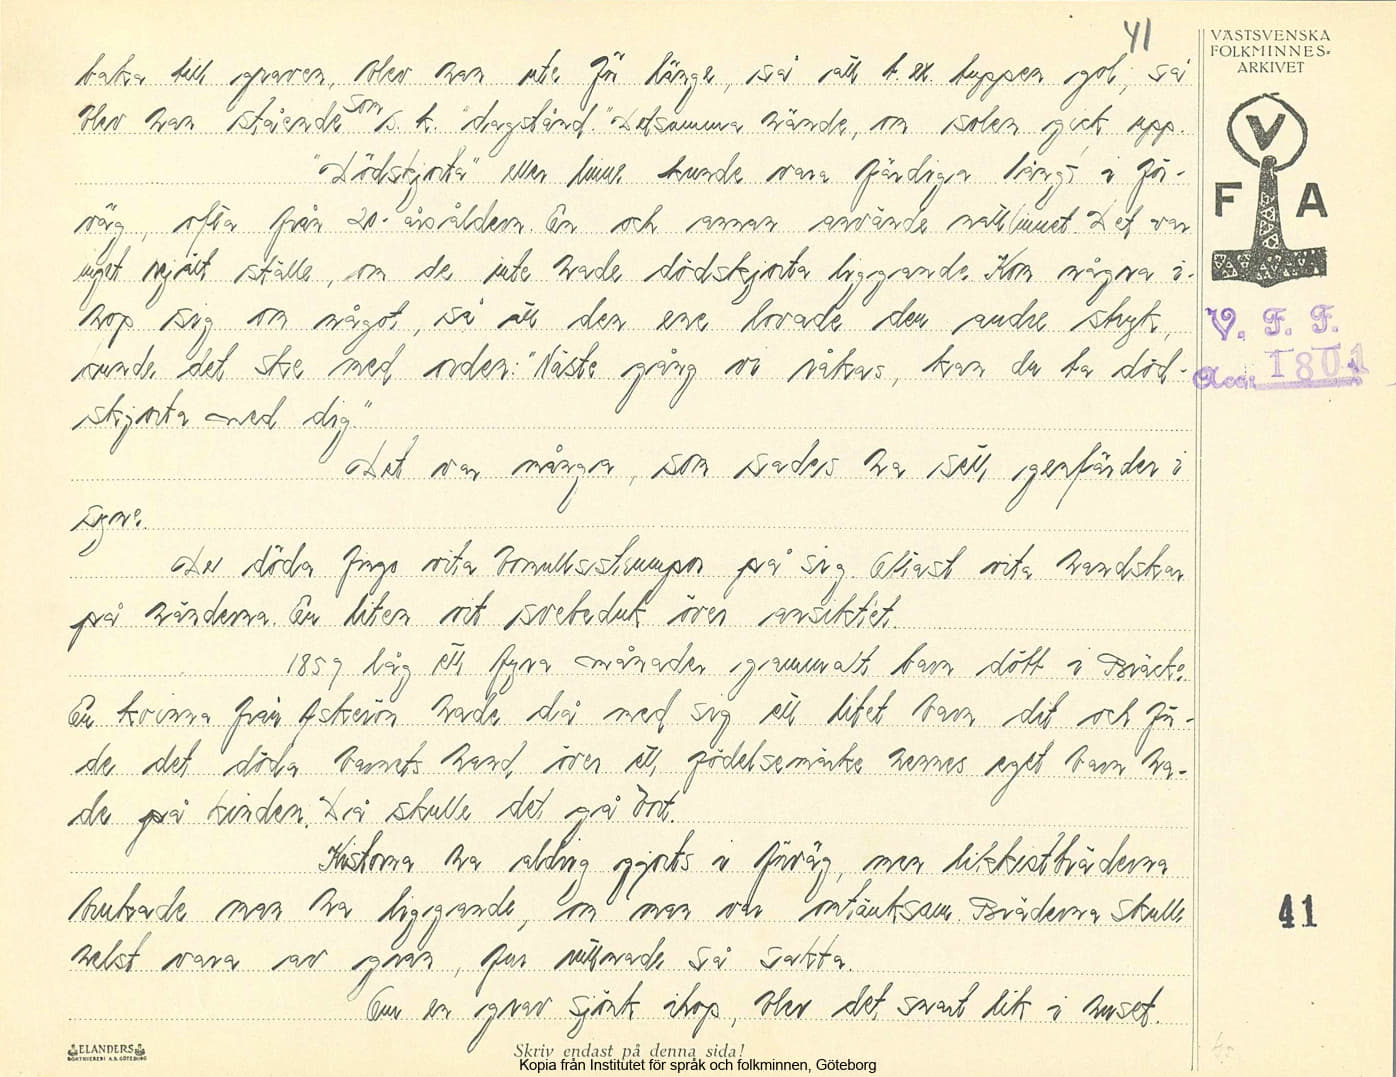 41
VÄSTSVENSKA
FOLKMINNES-
ARKIVET
baka till graven, blev han ute för länge, så att t. ex. tuppen gol, så
blev han stående som s. k. "dagstånd." Detsamma hände, om solen gick upp.
"Dödskjorta" eller linne kunde vara färdiga långt i för-
väg, ofta från 20-årsåldern. En och annan använde nattlinnet. Det var
inget rejält ställe, om de inte hade dödskjorta liggande. Kom några i-
hop sig om något, så att den ene lovade den andre stryk,
kunde det ske med orden: "Näste gång vi råkas, kan du ta död-
skjorta med dig"
Det var många, som sades ha sett genfärder i
syne.
De döda fingo vita bomullsstrumpor på sig. Oftast vita handskar
på händerna. En liten vit svebeduk över ansiktet.
1859 låg ett fyra månader gammalt barn dött i Bräcke.
En kvinna från Askerön hade då med sig ett litet barn dit och för-
de det döda barnets hand över ett födelsemärke hennes eget barn ha-
de på kinden. Då skulle det gå bort.
Kistorna ha aldrig gjorts i förväg, men likkistbräderna
brukade man ha liggande, om man var omtänksam. Bräderna skulle
helst vara av gran, fur ruttnade så sakta.
Om en grav sjönk ihop, blev det snart lik i huset.
V
F A
V. F. F.
Acc: 1801
41
ELANDERS
BOKTRYCKERI A.B. GÖTEBORG
Skriv endast på denna sida!
Kopia från Institutet för språk och folkminnen, Göteborg